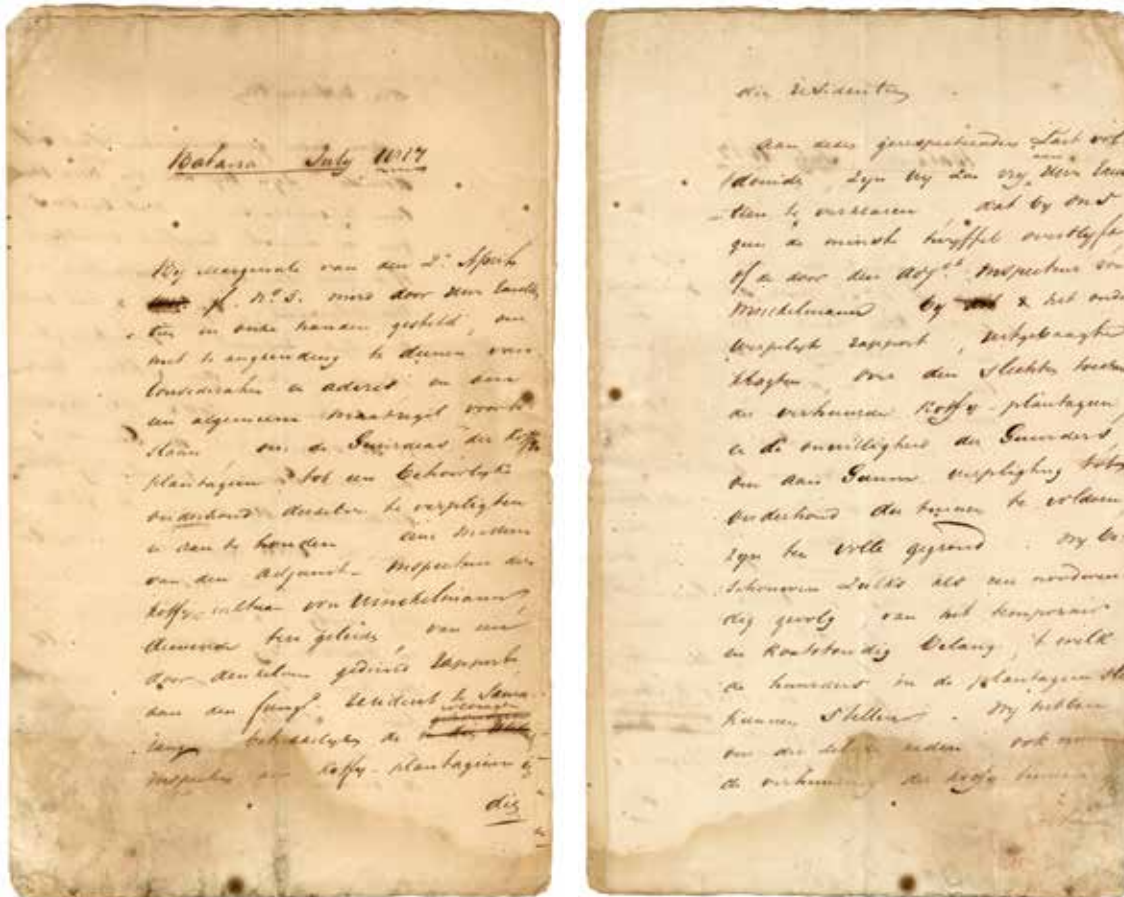 Batavia July 1817
By marginale van den 2e April
No 5. werd door Uwe Excellen
tie in onze handen gesteld, om
met terugzending te dienen van
Consideratien en advies en om
een algemeen maatregel voor te
slaan om de huurders der Koffy
plantagien tot een behoorlyke
onderhoud derzelve te verpligten
en aan te houden eene missive
van den Adjunct-Inspecteur der
Koffy-cultuur von Winckelmann,
dienende ten geleide van een
door denzelven gediend rapport
aan den fung. Resident te Sama
rang, betrekkelyk de
inspectie der Koffy-plantagien in
die
die residentie
Aan dezen gerespecteerden Last vol
doende, zyn wy zoo vry Uwe Excel
tien te verklaren, dat by ons
geen de minste twyffel overblyft
of de door den Adjct Inspecteur von
Winckelmann by & het onder
werpelyk rapport, uitgebragte
klagten, over den slechten toestan
der verhuurde Koffy-plantagien
en de onwilligheid der huurders,
om aan hunne verpligting tot
onderhoud der tuinen te voldoen
zyn ten volle gegrond. Wy be
schouwen zulks als een noodwen
dig gevolg van het temporair
en kortstondig belang, 't welk
de huurders in de plantagien
kunnen stellen. Wy hebben
om die reden ook
de verhuring der Koffy tuinen